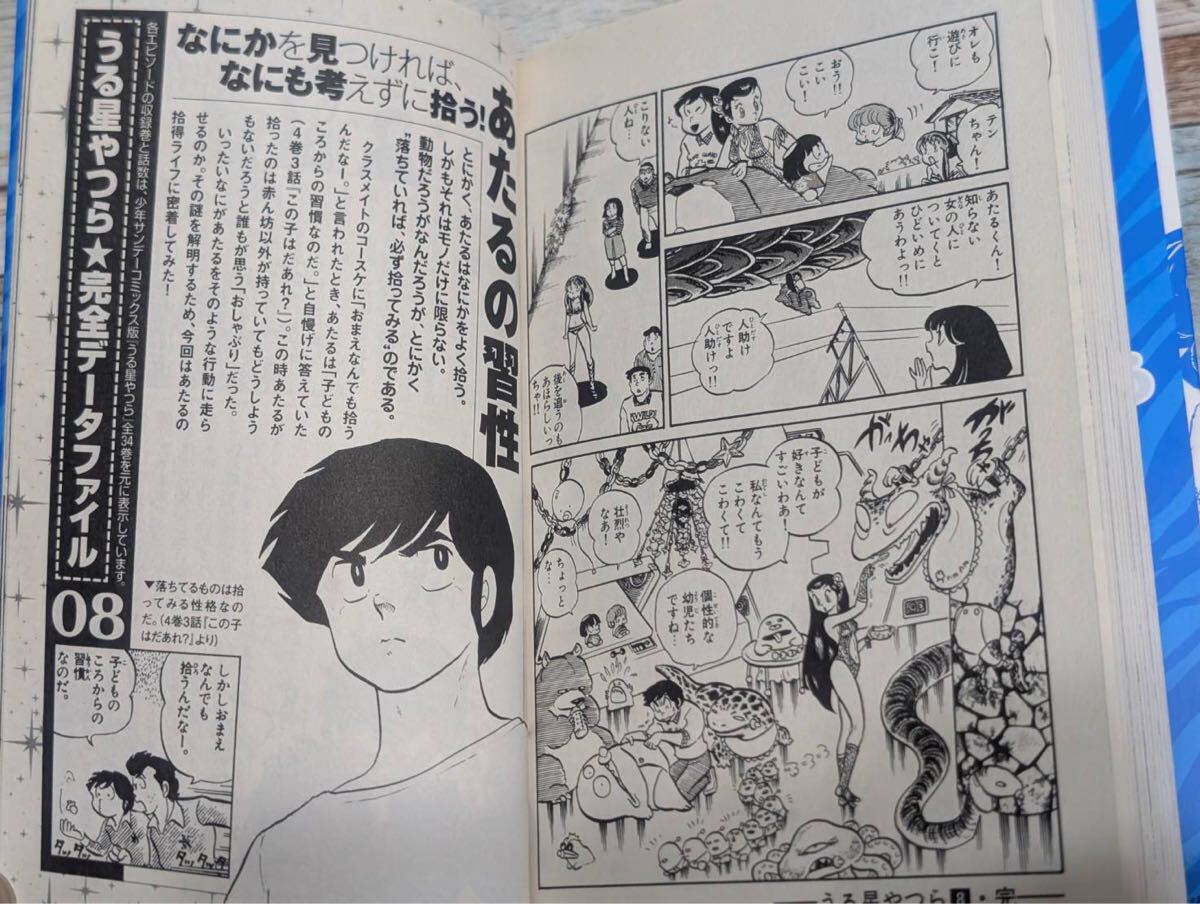 オレも
遊びに
行こ!
テン
ちゃん!
おう!!
こい
こい!
こりない
人ね!
あたるくん!
知らない
女の人に
ついてくと
ひどいめに
あうわよっ!!
人助け
ですよ
人助けっ!!
後を追うのも
あほらしいっ
ちゃ!!
ガラ
がっちゃ
子どもが
好きなんて
すごいわあ!
私なんてもう
こわくて
こわくて!!
壮烈や
なあ!
ちょっと
な…
個性的な
幼児たち
ですね…
うる星やつら8・完
なにかを見つければ、
なにも考えずに拾う!
あたるの習性
とにかく、あたるはなにかをよく拾う。
しかもそれはモノだけに限らない。
動物だろうがなんだろうが、とにかく
“落ちていれば、必ず拾ってみる”のである。
クラスメイトのコースケに「おまえなんでも拾う
んだなー。」と言われたとき、あたるは「子どもの
ころからの習慣なのだ。」と自慢げに答えていた
(4巻3話『この子はだあれ?』)。この時あたるが
拾ったのは赤ん坊以外が持っていてもどうしよう
もないだろうと誰もが思う「おしゃぶり」だった。
いったいなにがあたるをそのような行動に走ら
せるのか。その謎を解明するため、今回はあたるの
拾得ライフに密着してみた!
各エピソードの収録巻と話数は、少年サンデーコミックス版「うる星やつら」全34巻を元に表示しています。
うる星やつら★完全データファイル
08
▼落ちてるものは拾
ってみる性格なの
だ。(4巻3話『この子
はだあれ?』より)
しかしおまえ
なんでも
拾うんだなー。
子どもの
ころからの
習慣
なのだ。
タッタッ
タッタッ